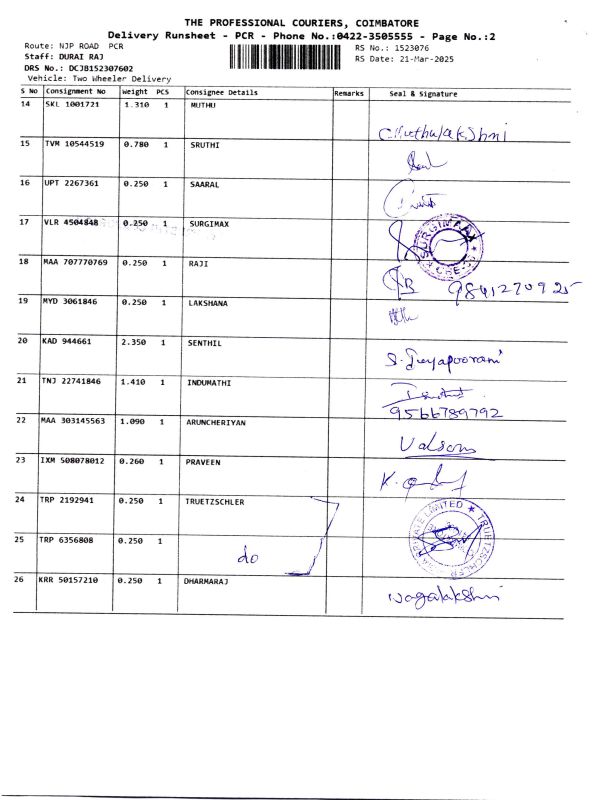 THE PROFESSIONAL COURIERS, COIMBATORE
Delivery Runsheet - PCR - Phone No.:0422-3505555 - Page No.:2
Route: NJP ROAD PCR
RS No.: 1523076
Staff: DURAI RAJ
RS Date: 21-Mar-2025
DRS No.: DCJB152307602
Vehicle: Two Wheeler Delivery
S No Consignment No Weight PCS Consignee Details Remarks Seal & Signature
14 SKL 1001721 1.310 1 MUTHU
15 TVM 10544519 0.780 1 SRUTHI
16 UPT 2267361 0.250 1 SAARAL
17 VLR 4504848 0.250 1 SURGIMAX
SURGIMAAX
18 MAA 707770769 0.250 1 RAJI
9841270925
19 MYD 3061846 0.250 1 LAKSHANA
20 KAD 944661 2.350 1 SENTHIL
S. Jeyapoorani
21 TNJ 22741846 1.410 1 INDUMATHI
9566789792
22 MAA 303145563 1.090 1 ARUNCHERIYAN
Valsons
23 IXM 508078012 0.260 1 PRAVEEN
24 TRP 2192941 0.250 1 TRUETZSCHLER
PRIVATE LIMITED ★ TRUETZSCHLER
25 TRP 6356808 0.250 1 do
26 KRR 50157210 0.250 1 DHARMARAJ
Nagalakshmi